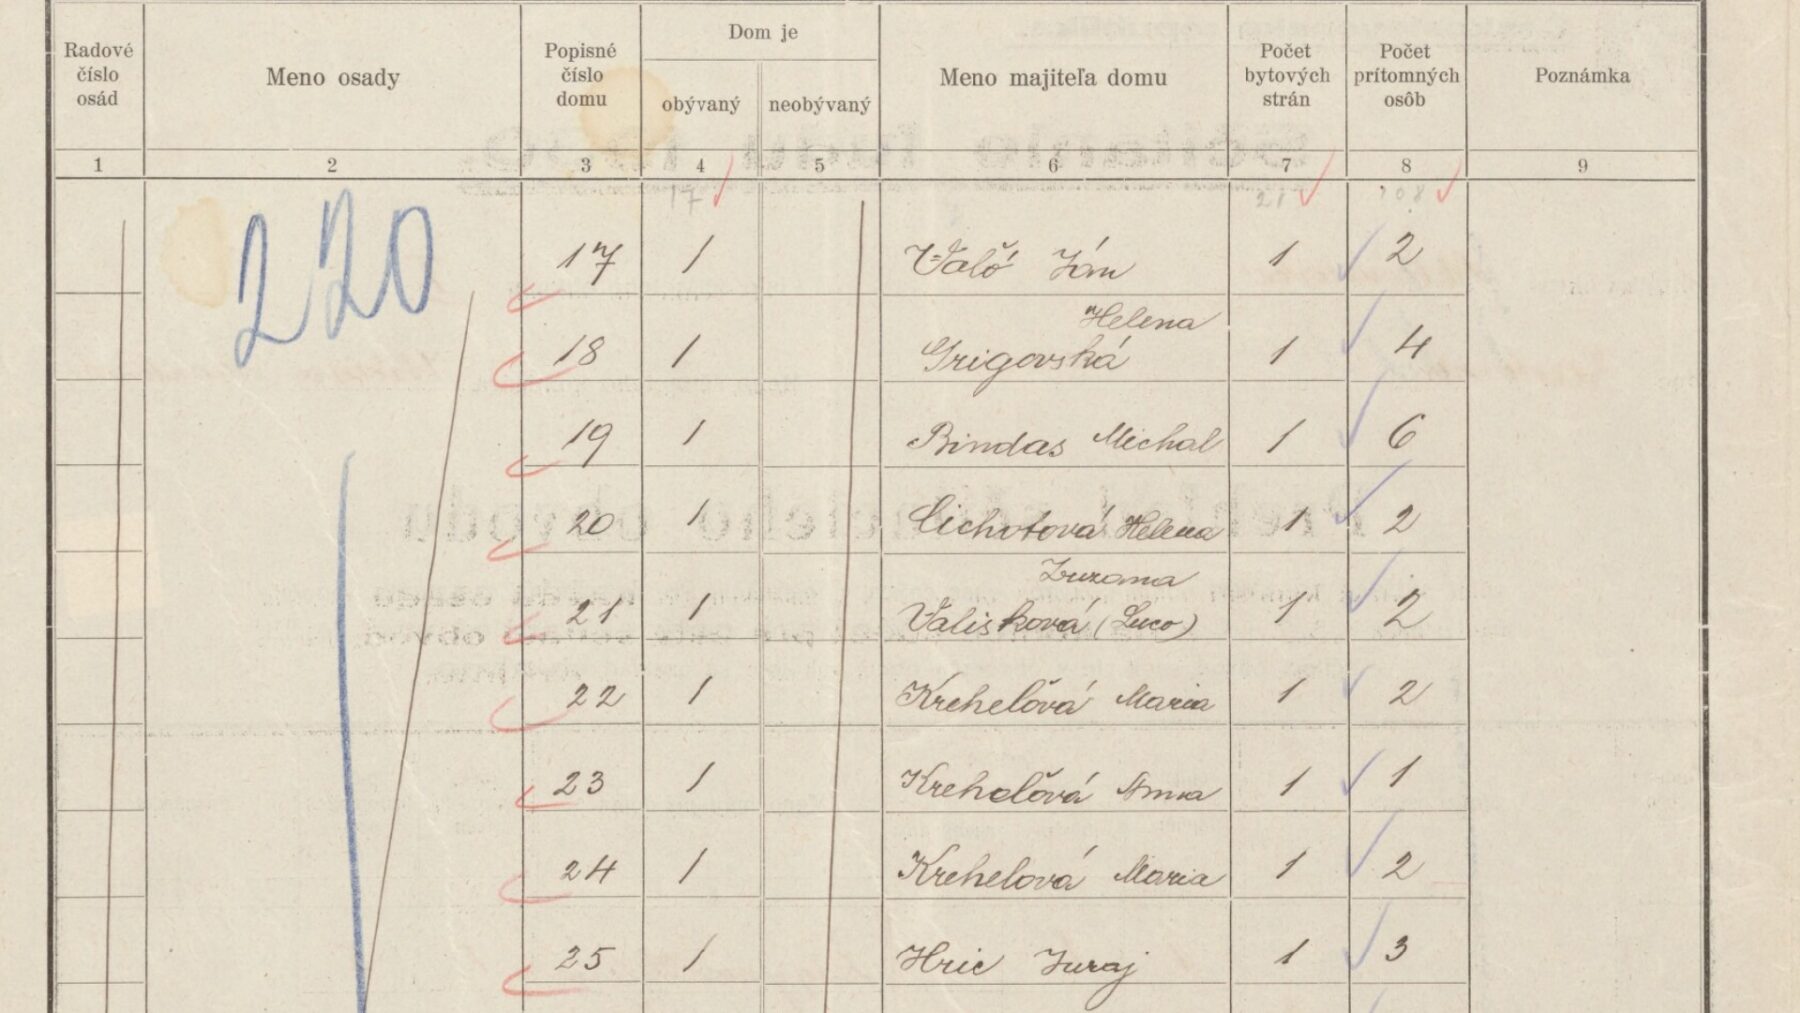 Radové číslo osád | Meno osady | Popisné číslo domu | Dom je | Meno majiteľa domu | Počet bytových strán | Počet prítomných osôb | Poznámka
obývaný | neobývaný
1 2 3 4 5 6 7 8 9
17 21 108
220
17 1 Valo Ján 1 2
Helena
18 1 Grigovská 1 4
19 1 Bindas Michal 1 6
20 1 Cichotová Helena 1 2
Zuzana
21 1 Valisková (Luco) 1 2
22 1 Kreheľová Maria 1 2
23 1 Kreheľová Anna 1 1
24 1 Krehelová Maria 1 2
25 1 Hric Juraj 1 3